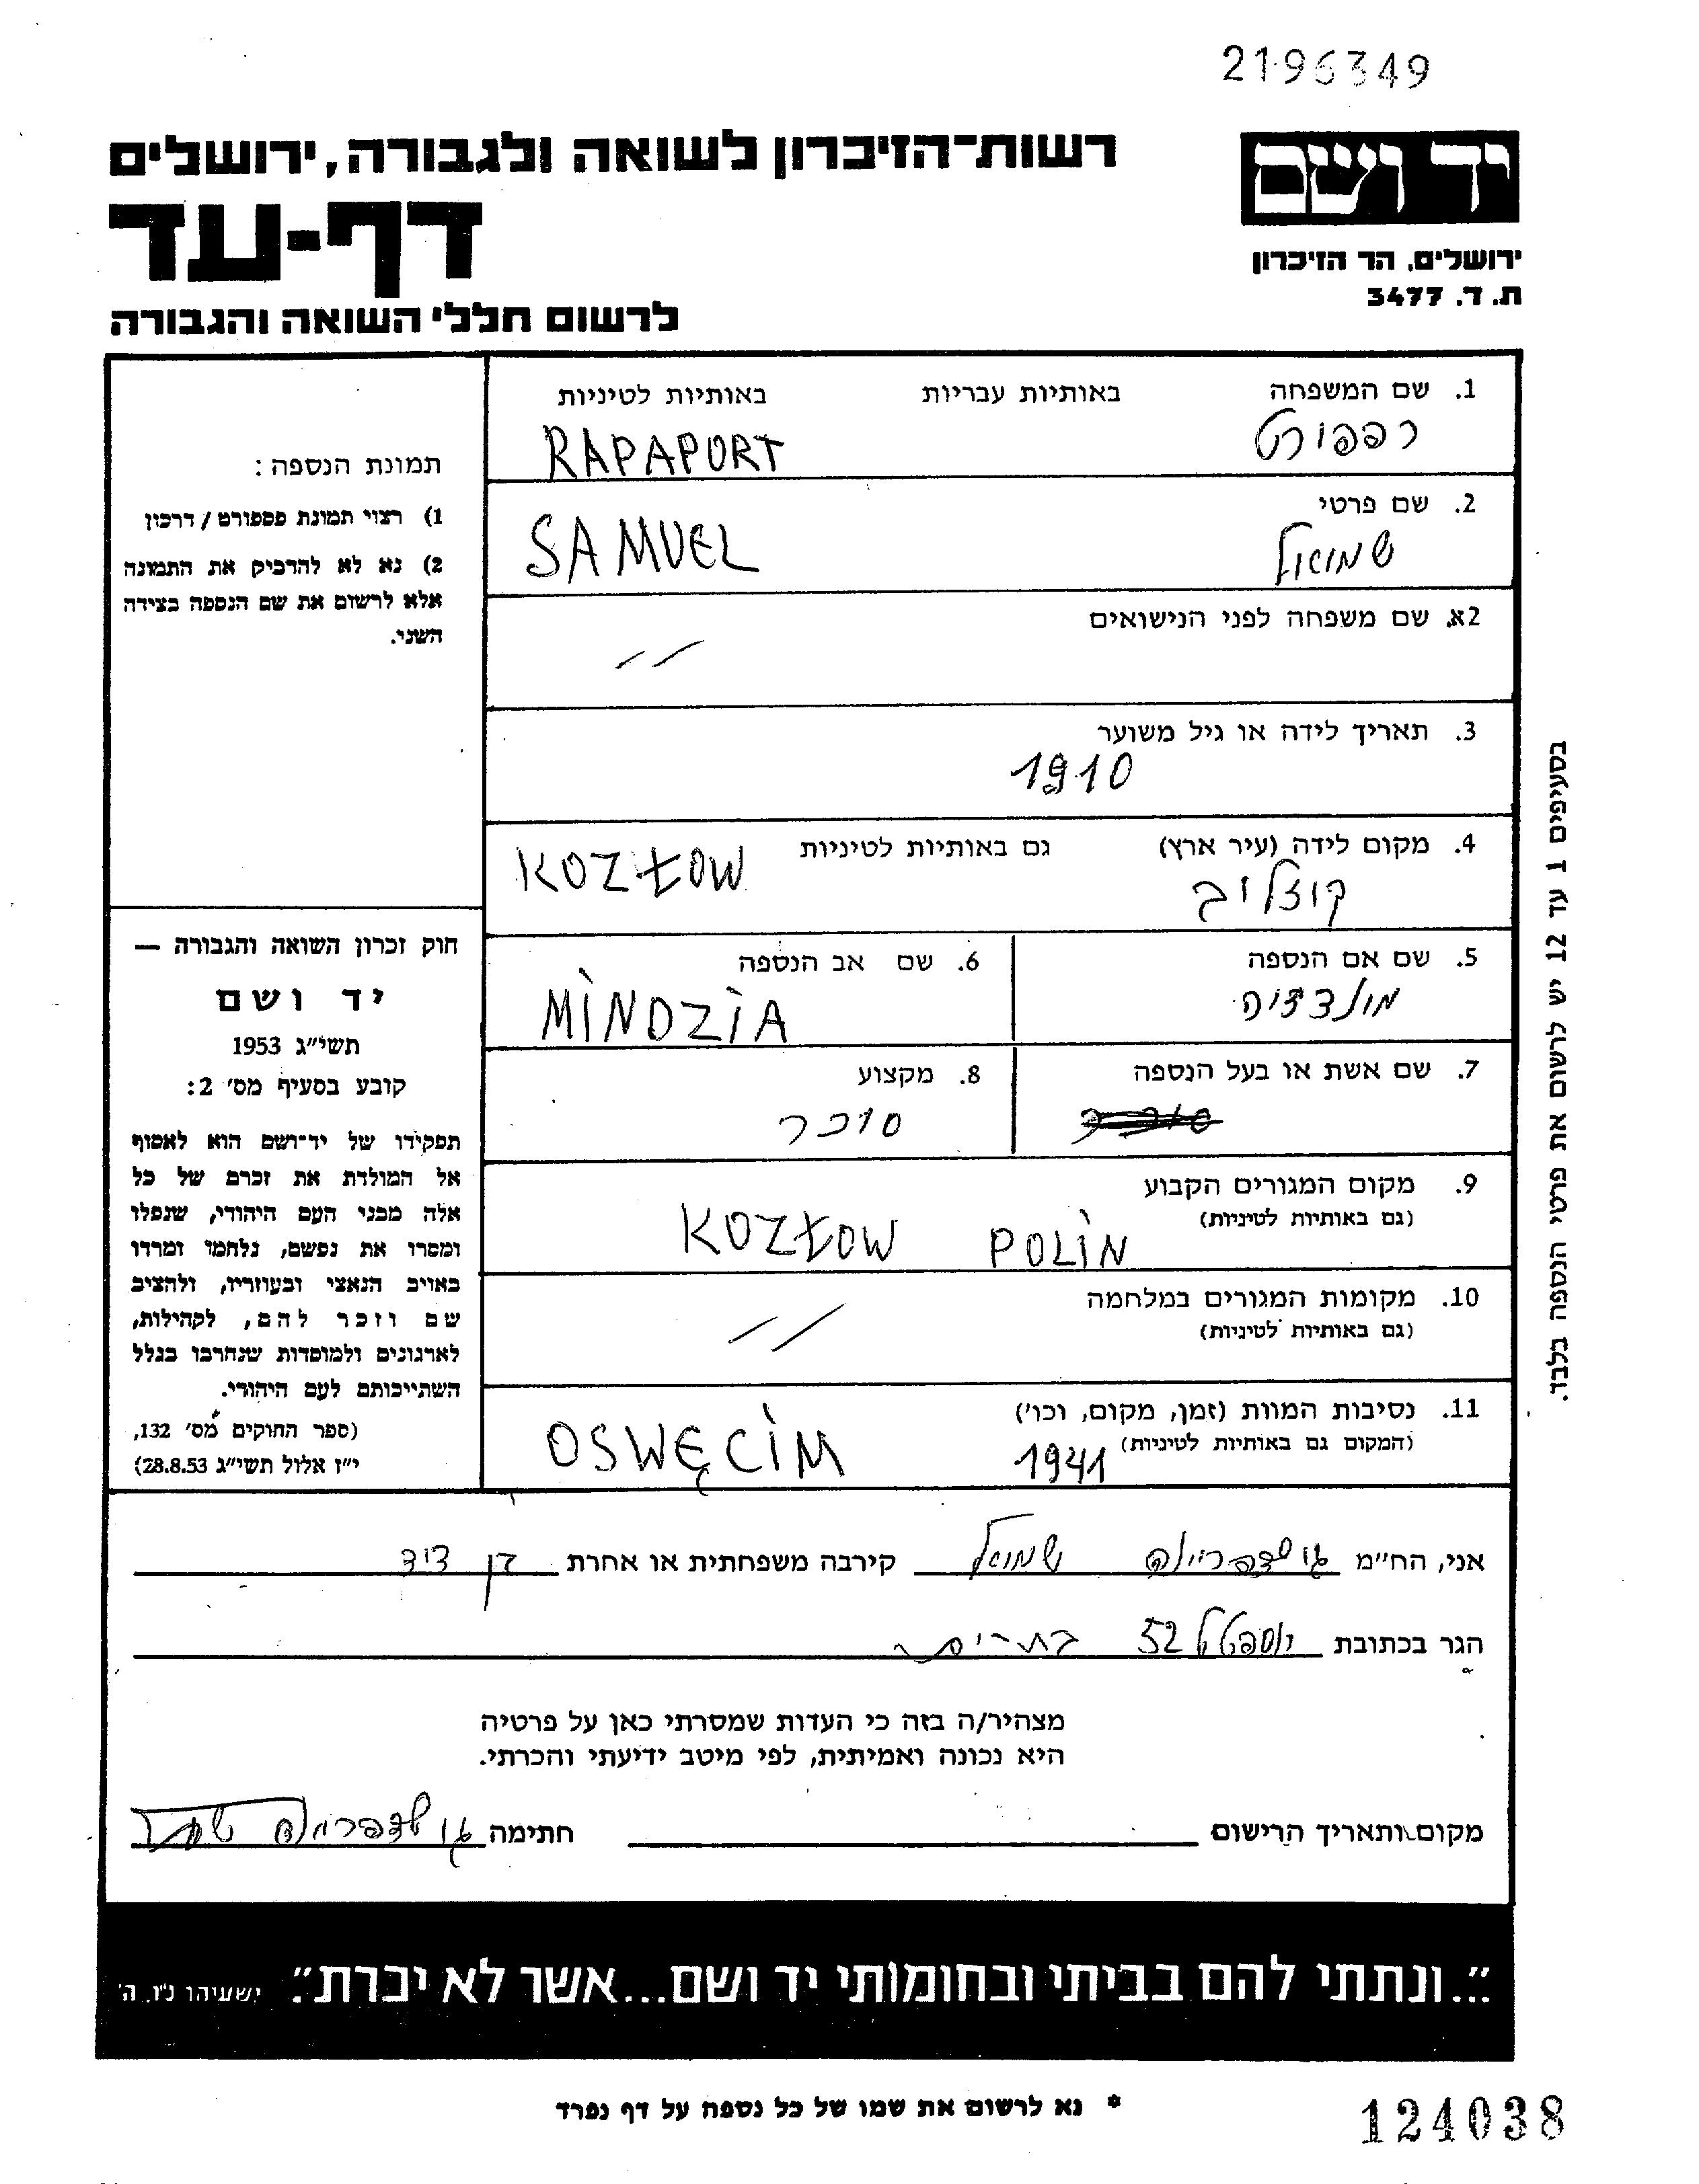 2196349
יד ושם
רשות־הזיכרון לשואה ולגבורה, ירושלים
דף-עד
ירושלים, הר הזיכרון
ת. ד. 3477
לרשום חללי השואה והגבורה
1. שם המשפחה באותיות עבריות באותיות לטיניות
רפפורט RAPAPORT
2. שם פרטי
שמואל SAMUEL
2א. שם משפחה לפני הנישואים
3. תאריך לידה או גיל משוער
1910
4. מקום לידה (עיר ארץ) גם באותיות לטיניות KOZŁOW
קוזלוב
5. שם אם הנספה 6. שם אב הנספה
MINDZIA
7. שם אשת או בעל הנספה 8. מקצוע
סוכר
9. מקום המגורים הקבוע
(גם באותיות לטיניות)
POLIN KOZŁOW
10. מקומות המגורים במלחמה
(גם באותיות לטיניות)
11. נסיבות המוות (זמן, מקום, וכו')
(המקום גם באותיות לטיניות) 1941 OSWĘCIM
תמונת הנספה:
1) רצוי תמונת פספורט / דרכון
2) נא לא להדביק את התמונה
אלא לרשום את שם הנספה בצידה
השני.
חוק זכרון השואה והגבורה —
יד ושם
תשי"ג 1953
קובע בסעיף מס' 2:
תפקידו של יד־ושם הוא לאסוף
אל המולדת את זכרם של כל
אלה מבני העם היהודי, שנפלו
ומסרו את נפשם, נלחמו ומרדו
באויב הנאצי ובעוזריו, ולהציב
שם וזכר להם, לקהילות,
לארגונים ולמוסדות שנחרבו בגלל
השתייכותם לעם היהודי.
(ספר החוקים מס' 132,
י"ז אלול תשי"ג 28.8.53)
בסעיפים 1 עד 12 יש לרשום את פרטי הנספה בלבד.
אני, הח"מ שמואל קירבה משפחתית או אחרת בן דוד
הגר בכתובת 52 בת-ים
מצהיר/ה בזה כי העדות שמסרתי כאן על פרטיה
היא נכונה ואמיתית, לפי מיטב ידיעתי והכרתי.
מקום ותאריך הרישום חתימה
"...ונתתי להם בביתי ובחומותי יד ושם...אשר לא יכרת". ישעיהו נ"ו, ה'
* נא לרשום את שמו של כל נספה על דף נפרד
124038